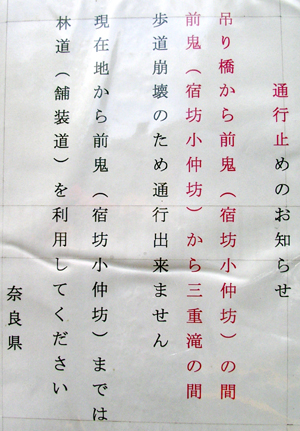 通行止めのお知らせ
吊り橋から前鬼（宿坊小仲坊）の間
前鬼（宿坊小仲坊）から三重滝の間
歩道崩壊のため通行出来ません
現在地から前鬼（宿坊小仲坊）までは
林道（舗装道）を利用してください
奈良県